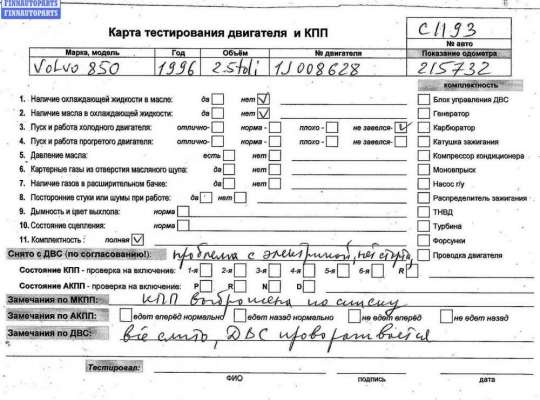 FINNAUTOPARTS
FINNAUTOPARTS
Карта тестирования двигателя и КПП
C1193
№ авто
Марка, модель Год Объём № двигателя Показание одометра
Volvo 850 1996 2.5tdi 1J008628 215732
комплектность
1. Наличие охлаждающей жидкости в масле: да нет
Блок управления ДВС
2. Наличие масла в охлаждающей жидкости: да нет
Генератор
3. Пуск и работа холодного двигателя: отлично- норма - плохо - не завелся-
Карбюратор
4. Пуск и работа прогретого двигателя: отлично- норма - плохо - не завелся-
Катушка зажигания
5. Давление масла: есть нет
Компрессор кондиционера
6. Картерные газы из отверстия масляного щупа: да нет
Моновпрыск
7. Наличие газов в расширительном бачке: да нет
Насос г/у
8. Посторонние стуки или шумы при работе: да нет
Распределитель зажигания
9. Дымность и цвет выхлопа: норма
ТНВД
10. Состояние сцепления: норма
Турбина
11. Комплектность : полная
Форсунки
Снято с ДВС (по согласованию!): проблема с электрикой, нет
Проводка двигателя
Состояние КПП - проверка на включение: 1-я 2-я 3-я 4-я 5-я 6-я R
Состояние АКПП - проверка на включение: P R N D
Замечания по МКПП: КПП выброшена по списку
Замечания по АКПП: едет вперёд нормально едет назад нормально не едет вперёд не едет назад
Замечания по ДВС: всё слито, ДВС проворачивается
Тестировал:
ФИО подпись дата